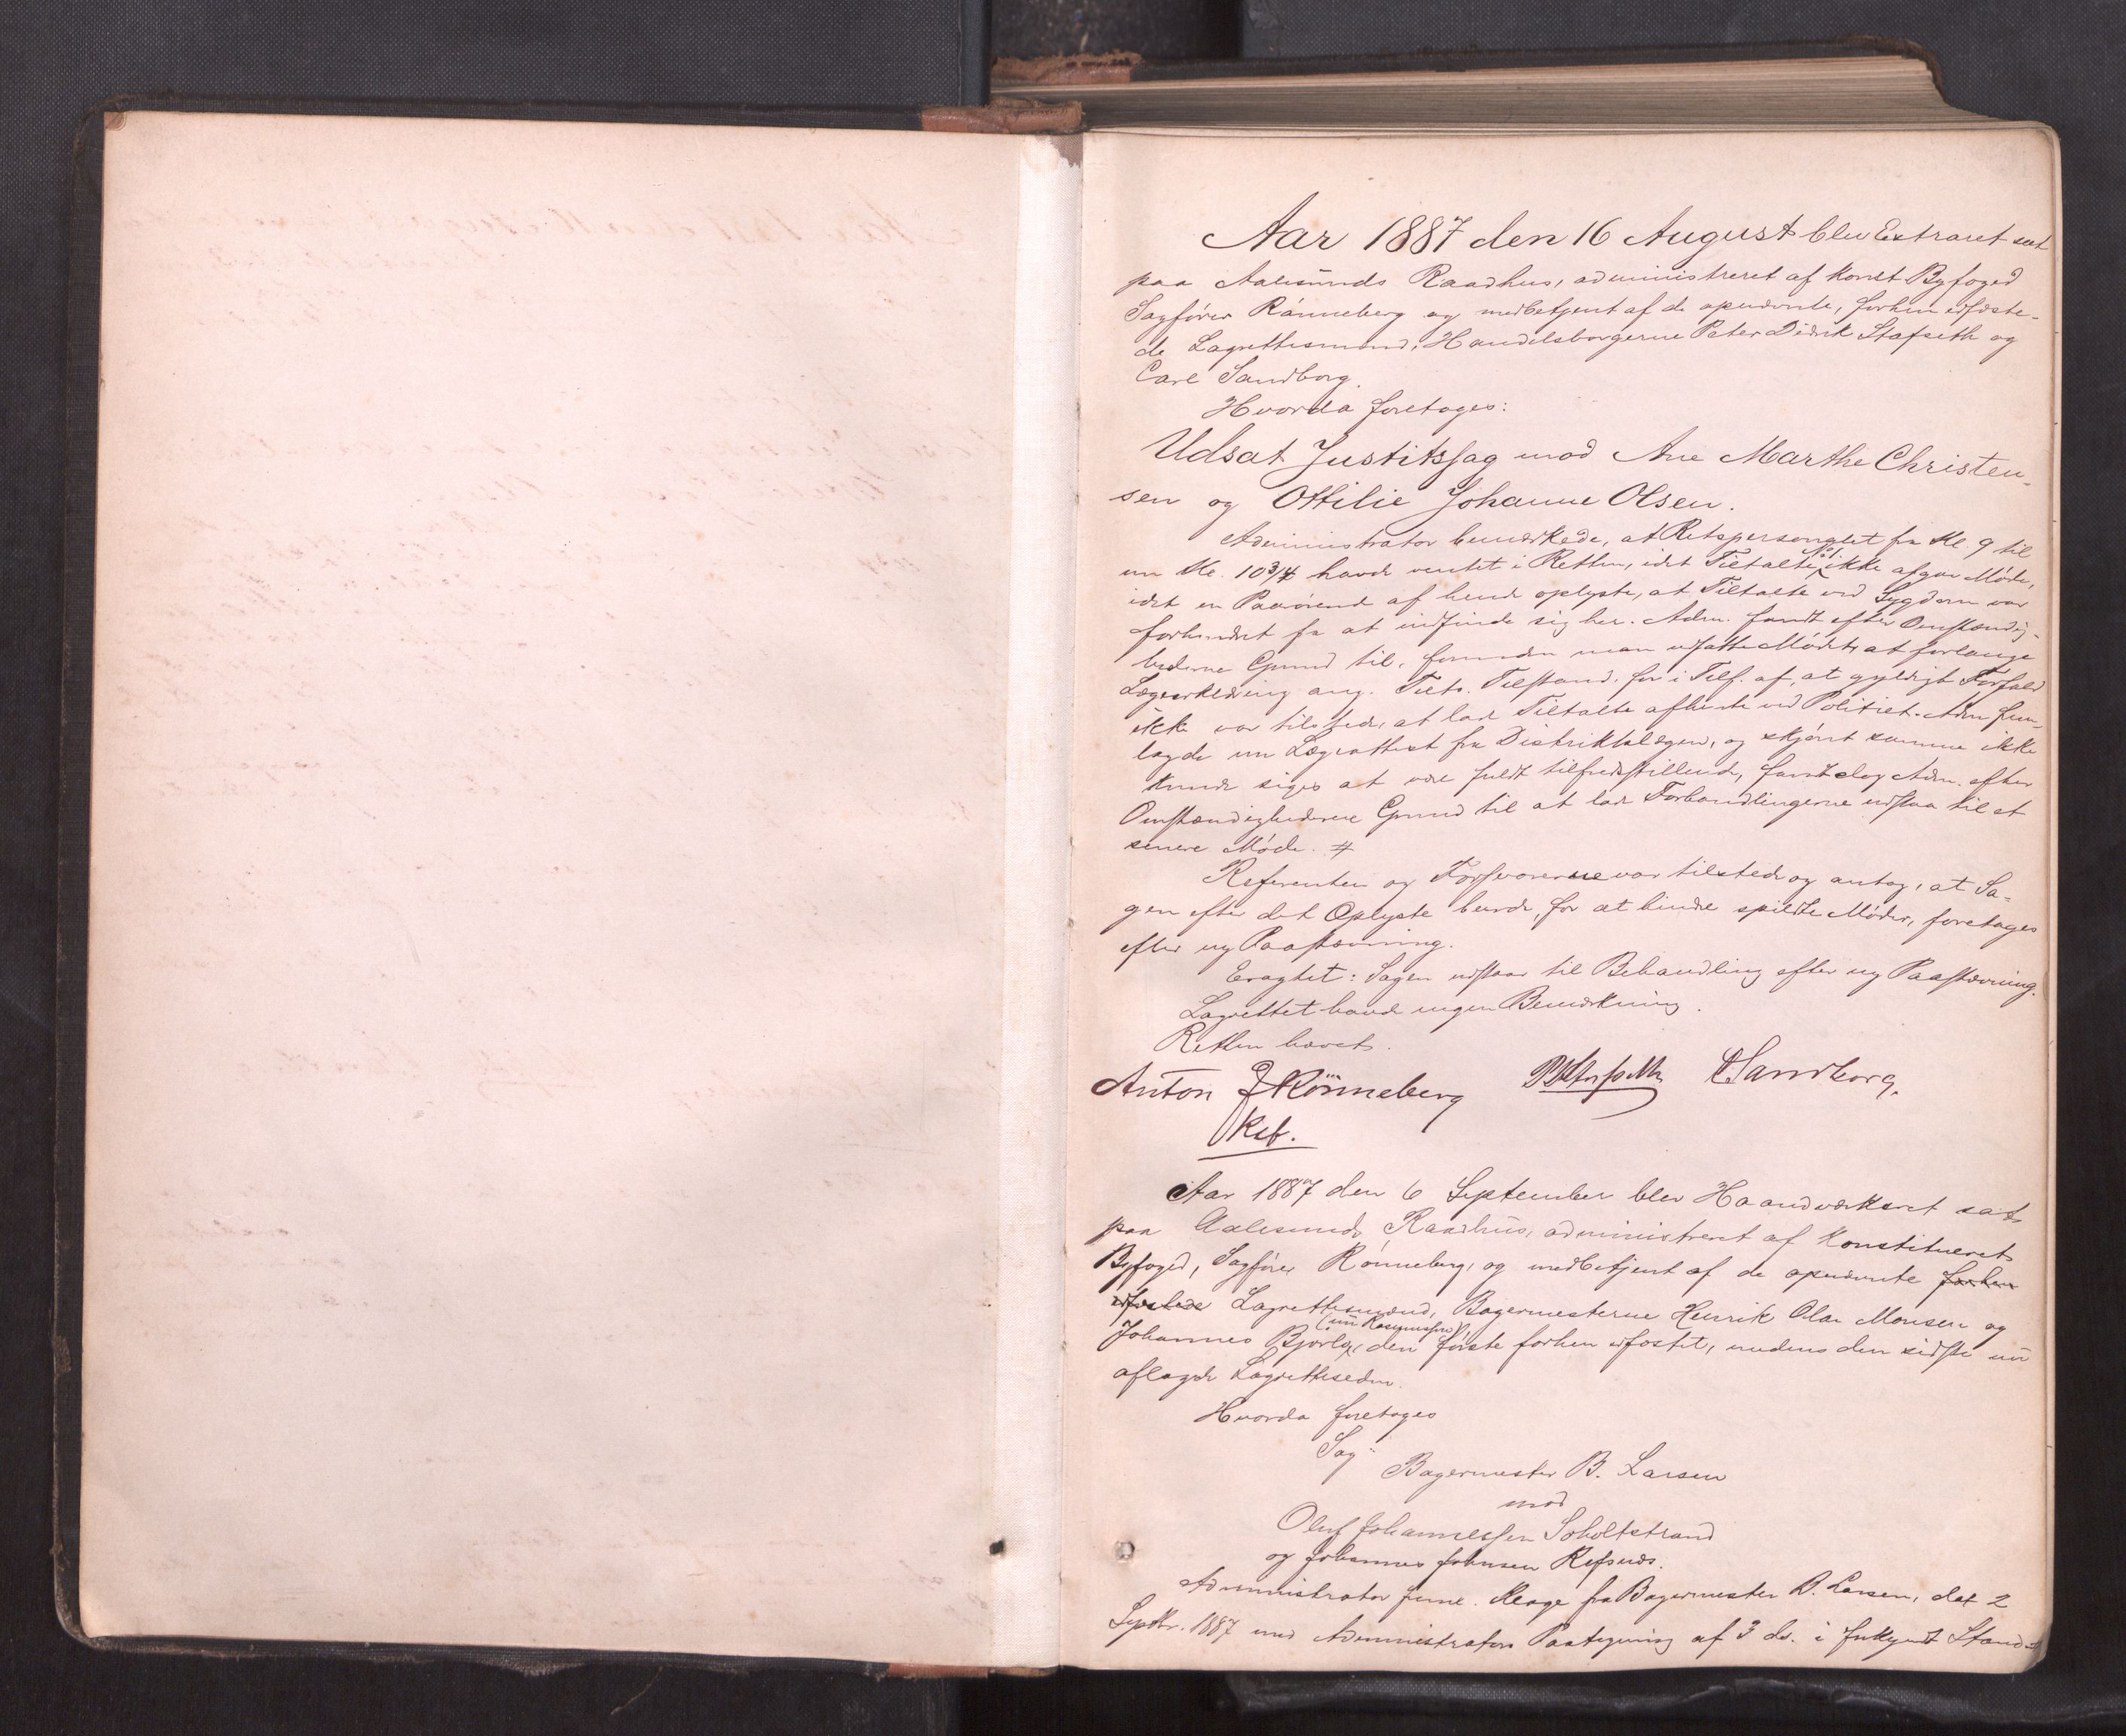 Aar 1887 den 16 August blev Extraret sat
paa Aalesunds Raadhus, administreret af konst Byfoged
Sagfører Rönneberg og medbetjent af de opnævnte, forhen edfæste-
de Lagrettesmænd, Handelsborgerne Peter Didrik Stafseth og
Carl Sandborg.
Hvorda foretoges:
Udsat Justitssag mod Ane Marthe Christen-
sen og Ottilie Johanne Olsen.
Administrator bemærkede, at Retspersonalet fra Kl. 9 til
nu Kl. 10 3/4 havde ventet i Retten, idet Tiltalte No 1 ikke afgav Møde,
idet en Paarørende af hende oplyste, at Tiltalte ved Sygdom var
forhindret fra at indfinde sig her. Adm. fandt efter Omstændig-
hederne Grund til, forinden man udsatte Mødet, at forlange
Lægeerklæring ang. Tilts. Tilstand, for i Tilf. af, at gyldigt Forfald
ikke var tilstede, at lade Tiltalte afhente ved Politiet. Adm frem-
lagde nu Lægeattest fra Distriktslægen, og skjønt samme ikke
kunde siges at være fuldt tilfredsstillende, fandt dog Adm. efter
Omstændighederne Grund til at lade Forhandlingerne udstaa til et
senere Møde. #
Referenten og Forsvarerne var tilstede og antog, at Sa-
gen efter det Oplyste burde, for at hindre spildte Møder, foretages
efter ny Paastævning.
Eragtet: Sagen udstaar til Behandling efter ny Paastævning.
Lagrettet havde ingen Bemærkning.
Retten hævet.
Anton J Rönneberg PDStafseth CSandborg.
Kst.
Aar 1887 den 6 September blev Haandværksret sat
paa Aalesunds Raadhus, administreret af Konstitueret
Byfoged, Sagfører Rönneberg, og medbetjent af de opnævnte forhen
edfæstede Lagrettesmænd, Bagermesterne Henrik Olai Monsen og
Johannes Bjørlo (nu Rasmussen), den første forhen edfæstet, medens den sidste nu
aflagde Lagretteseden.
Hvorda foretoges
Sag:
Bagermester B. Larsen
mod
Oluf Johannessen Soholtstrand
og Johannes Johnsen Refsnæs.
Administrator freml. Klage fra Bagermester B. Larsen, dat 2
Septbr. 1887 med Administrators Paategning af 3 ds. i forkyndt Stand